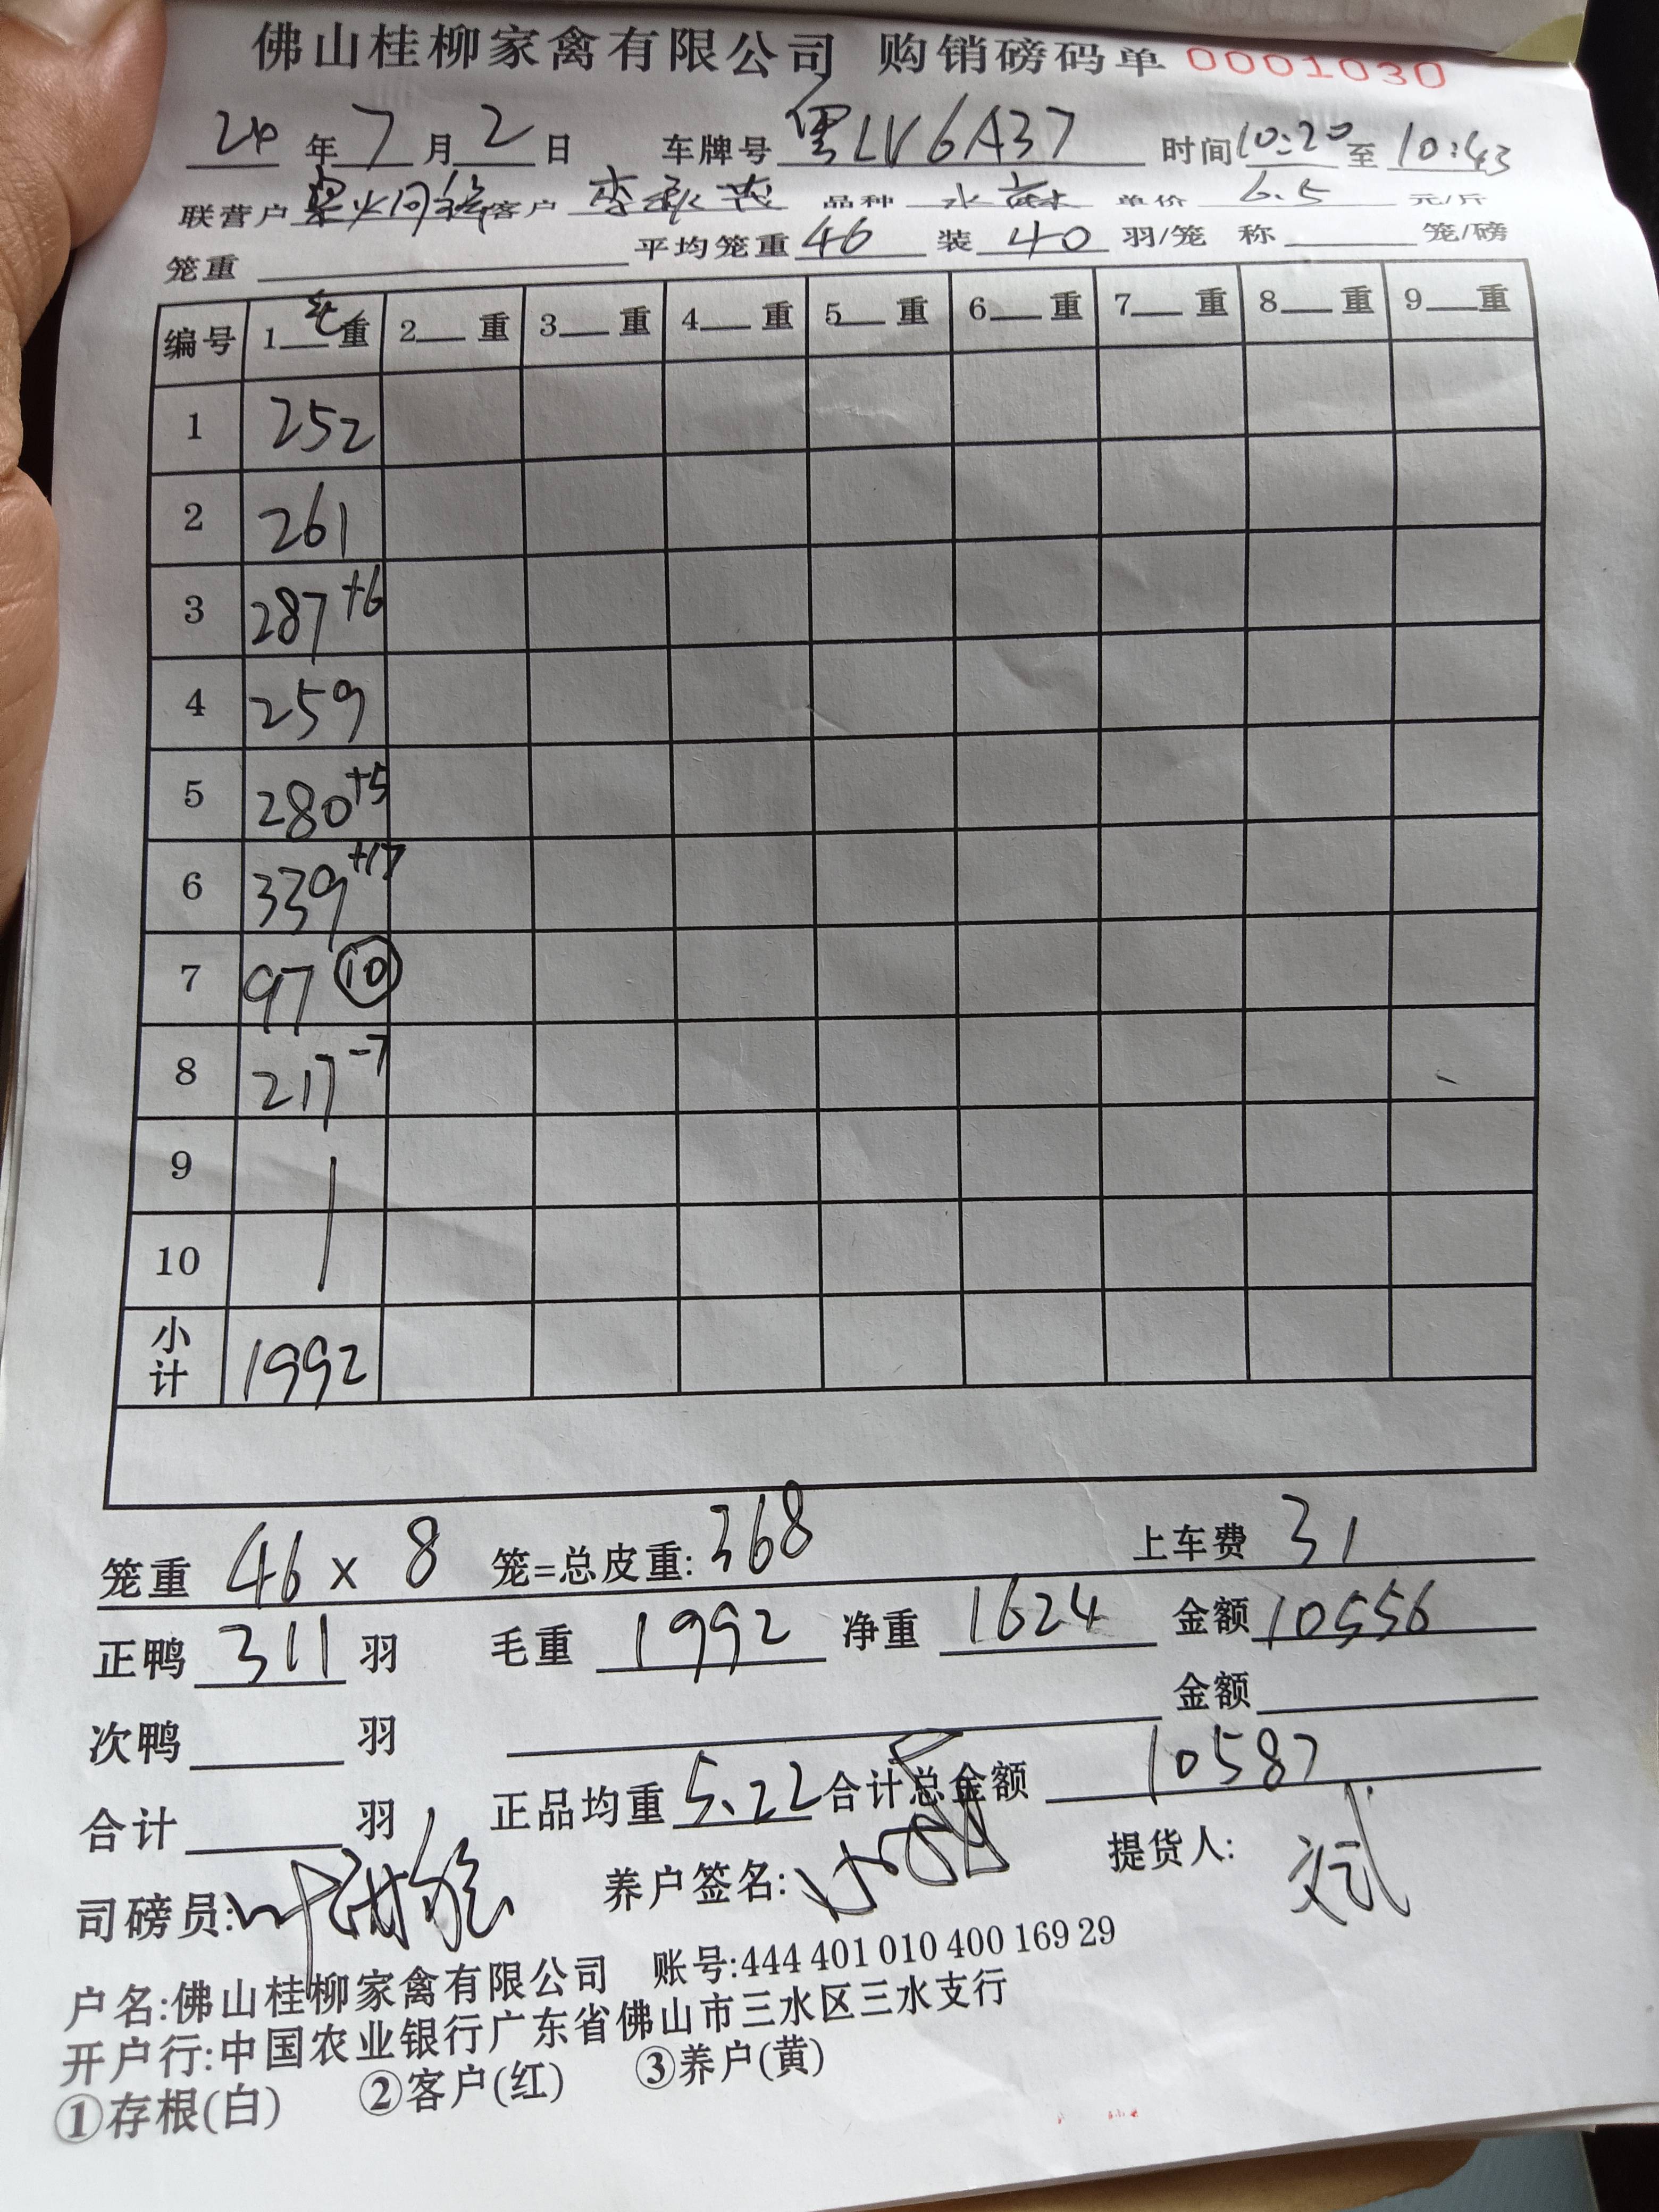 佛山桂柳家禽有限公司 购销磅码单 0001030
24 年 7 月 2 日 车牌号 粤LV6A37 时间 10:20 至 10:43
联营户 客户 李 茂 品种 水麻 单价 6.5 元/斤
笼重 平均笼重 46 装 40 羽/笼 称 笼/磅
编号 1 毛 重 2 重 3 重 4 重 5 重 6 重 7 重 8 重 9 重
1 252
2 261
3 287 +6
4 259
5 280 +5
6 339 +17
7 97 ⑩
8 217 -7
9
10
小计 1992
笼重 46 x 8 笼=总皮重: 368 上车费 31
正鸭 311 羽 毛重 1992 净重 1624 金额 10556
次鸭 羽 金额
合计 羽 正品均重 5.22 合计总金额 10587
司磅员: 养户签名: 提货人: 文武
户名:佛山桂柳家禽有限公司 账号:444 401 010 400 169 29
开户行:中国农业银行广东省佛山市三水区三水支行
①存根(白) ②客户(红) ③养户(黄)